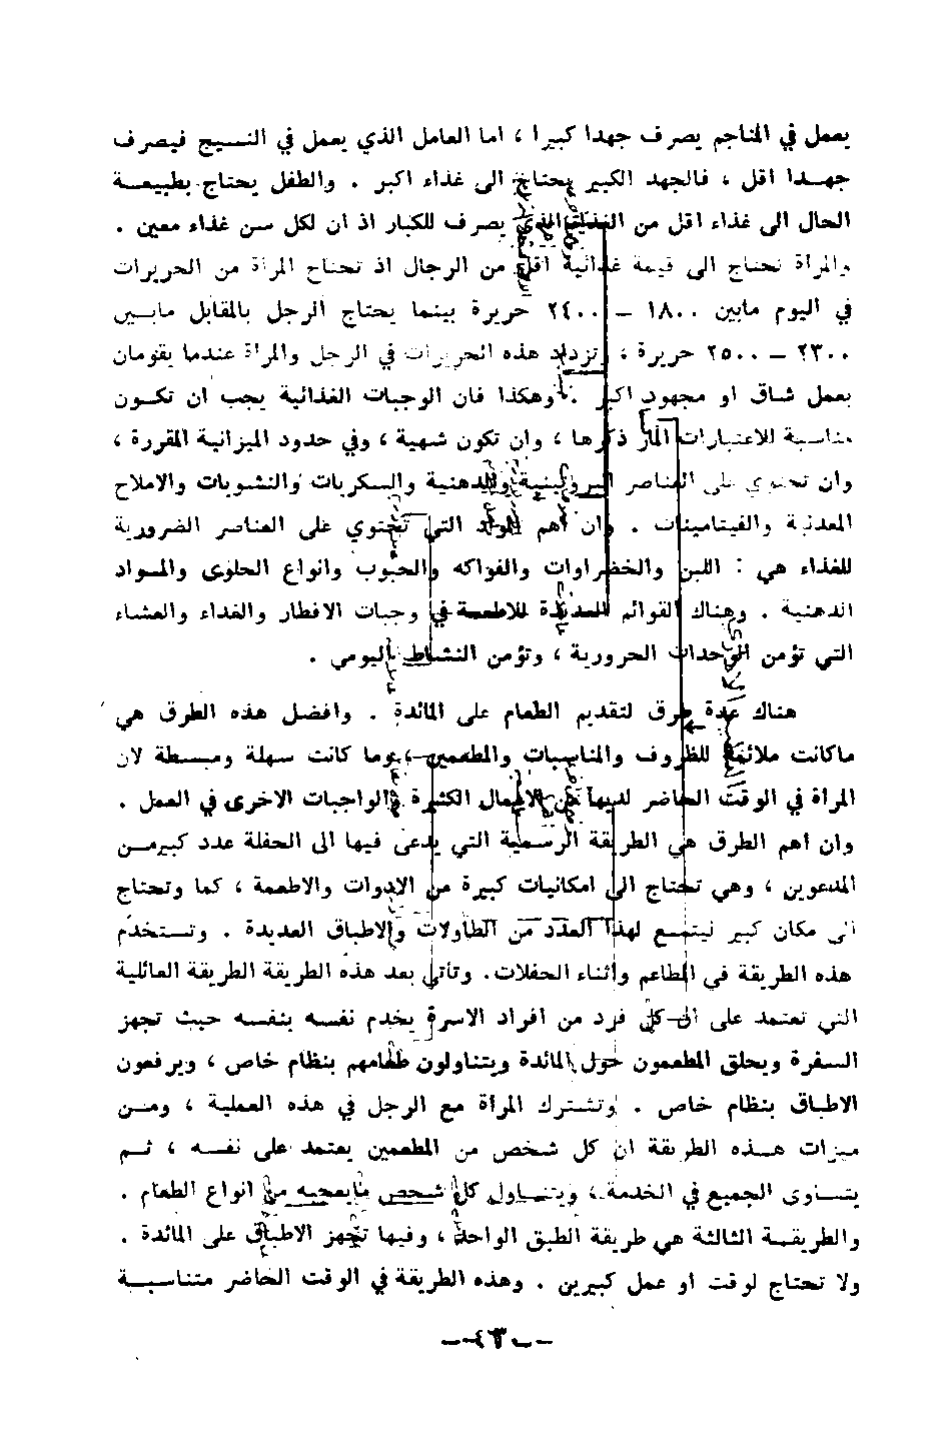 يعمل في المناجم يصرف جهدا كبيرا ، اما العامل الذي يعمل في النسيج فيصرف
جهدا اقل ، فالجهد الكبير يحتاج الى غذاء اكبر . والطفل يحتاج بطبيعة
الحال الى غذاء اقل من الغذاء الذي يصرف للكبار اذ ان لكل سن غذاء معين .
والمرأة تحتاج الى قيمة غذائية اقل من الرجال اذ تحتاج المرأة من الحريرات
في اليوم مابين ١٨٠٠ – ٢٤٠٠ حريرة بينما يحتاج الرجل بالمقابل مابين
٢٣٠٠ – ٢٥٠٠ حريرة ، وتزداد هذه الحريرات في الرجل والمرأة عندما يقومان
بعمل شاق او مجهود اكبر . وهكذا فان الوجبات الغذائية يجب ان تكون
مناسبة للاعتبارات المار ذكرها ، وان تكون شهية ، وفي حدود الميزانية المقررة ،
وان تحتوي على العناصر البروتينية والدهنية والسكريات والنشويات والاملاح
المعدنية والفيتامينات . وان اهم المواد التي تحتوي على العناصر الضرورية
للغذاء هي : اللبن والخضراوات والفواكه والحبوب وانواع الحلوى والمواد
الدهنية . وهناك القوائم العديدة للاطعمة في وجبات الافطار والغداء والعشاء
التي تؤمن الوحدات الحرورية ، وتؤمن النشاط اليومي .
هناك عدة طرق لتقديم الطعام على المائدة . وافضل هذه الطرق هي
ماكانت ملائمة للظروف والمناسبات والمطعمين ، وما كانت سهلة ومبسطة لان
المرأة في الوقت الحاضر لديها من الاعمال الكثيرة والواجبات الاخرى في العمل .
وان اهم الطرق هي الطريقة الرسمية التي يدعى فيها الى الحفلة عدد كبير من
المدعوين ، وهي تحتاج الى امكانيات كبيرة من الادوات والاطعمة ، كما وتحتاج
الى مكان كبير ليتسع لهذا العدد من الطاولات والاطباق العديدة . وتستخدم
هذه الطريقة في المطاعم واثناء الحفلات. وتأتي بعد هذه الطريقة الطريقة العائلية
التي تعتمد على ان كل فرد من افراد الاسرة يخدم نفسه بنفسه حيث تجهز
السفرة ويحلق المطعمون حول المائدة ويتناولون طعامهم بنظام خاص ، ويرفعون
الاطباق بنظام خاص . وتشترك المرأة مع الرجل في هذه العملية ، ومن
ميزات هذه الطريقة ان كل شخص من المطعمين يعتمد على نفسه ، ثم
يتساوى الجميع في الخدمة ، ويتناول كل شخص مايعجبه من انواع الطعام .
والطريقة الثالثة هي طريقة الطبق الواحد ، وفيها تجهز الاطباق على المائدة .
ولا تحتاج لوقت او عمل كبيرين . وهذه الطريقة في الوقت الحاضر متناسبة